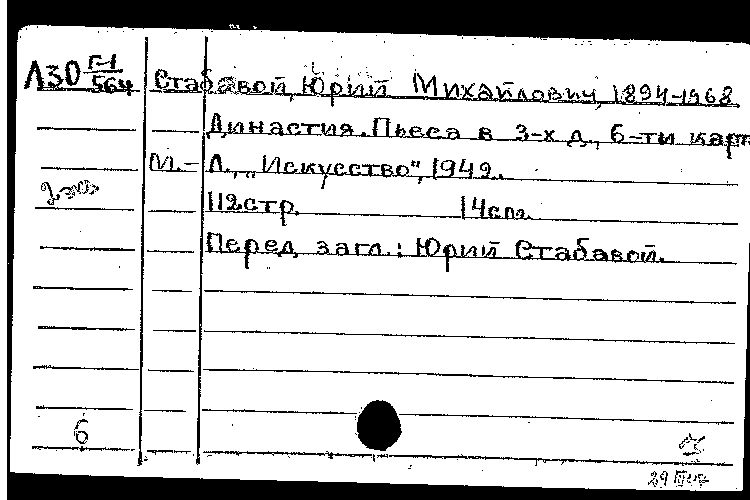 Л30 Г-1/564 Стабавой, Юрий Михайлович, 1894-1968
Династия. Пьеса в 3-х д., 6-ти карт
М.-Л., „Искусство", 1949.
2 экз
112стр. 14см.
Перед загл.: Юрий Стабавой.
6
29